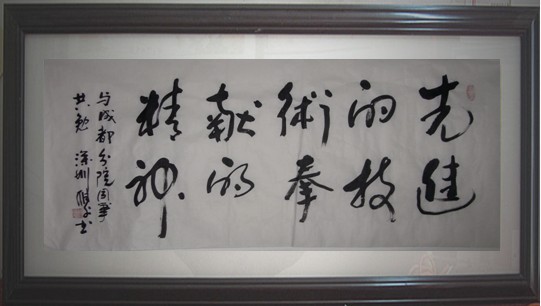 先進
的技
術奉
献的
精神
与成都分院同事
共勉 深圳
书